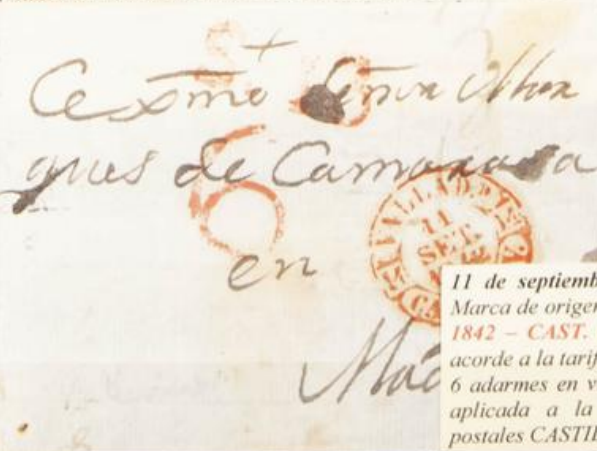 +
Exmo Señor Mar
ques de Camarasa
6
en
Mad
VALLAD
11
SET
11 de septiemb
Marca de origen
1842 – CAST.
acorde a la tarif
6 adarmes en v
aplicada a la
postales CASTIL